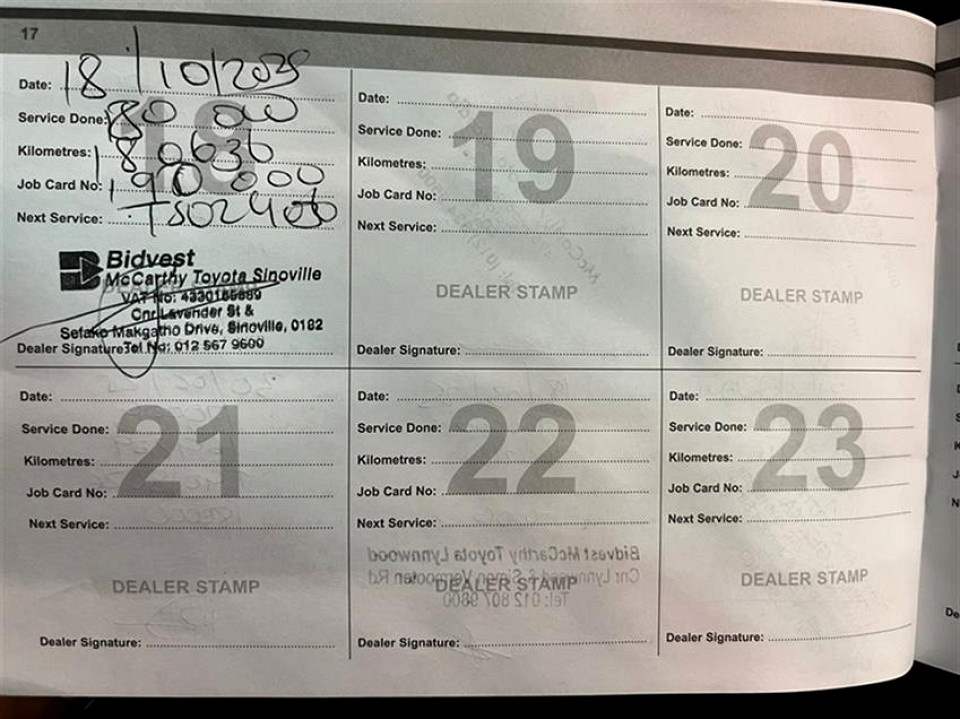 17
Date: 18/10/2025
Service Done: 80 000
Kilometres: 180636
Job Card No: 190 000
Next Service: TS02406
18
Bidvest
McCarthy Toyota Sinoville
VAT No: 4330165689
Cnr Lavender St &
Sefako Makgatho Drive, Sinoville, 0182
Tel No: 012 567 9600
Dealer Signature
Date:
Service Done:
Kilometres:
Job Card No:
Next Service:
19
DEALER STAMP
Dealer Signature:
Date:
Service Done:
Kilometres:
Job Card No:
Next Service:
20
DEALER STAMP
Dealer Signature:
Date:
Service Done:
Kilometres:
Job Card No:
Next Service:
21
DEALER STAMP
Dealer Signature:
Date:
Service Done:
Kilometres:
Job Card No:
Next Service:
22
Bidvest McCarthy Toyota Lynnwood
Cnr Lynnwood & Simon Vermooten Rd
DEALER STAMP
Tel: 012 807 9800
Dealer Signature:
Date:
Service Done:
Kilometres:
Job Card No:
Next Service:
23
DEALER STAMP
Dealer Signature: